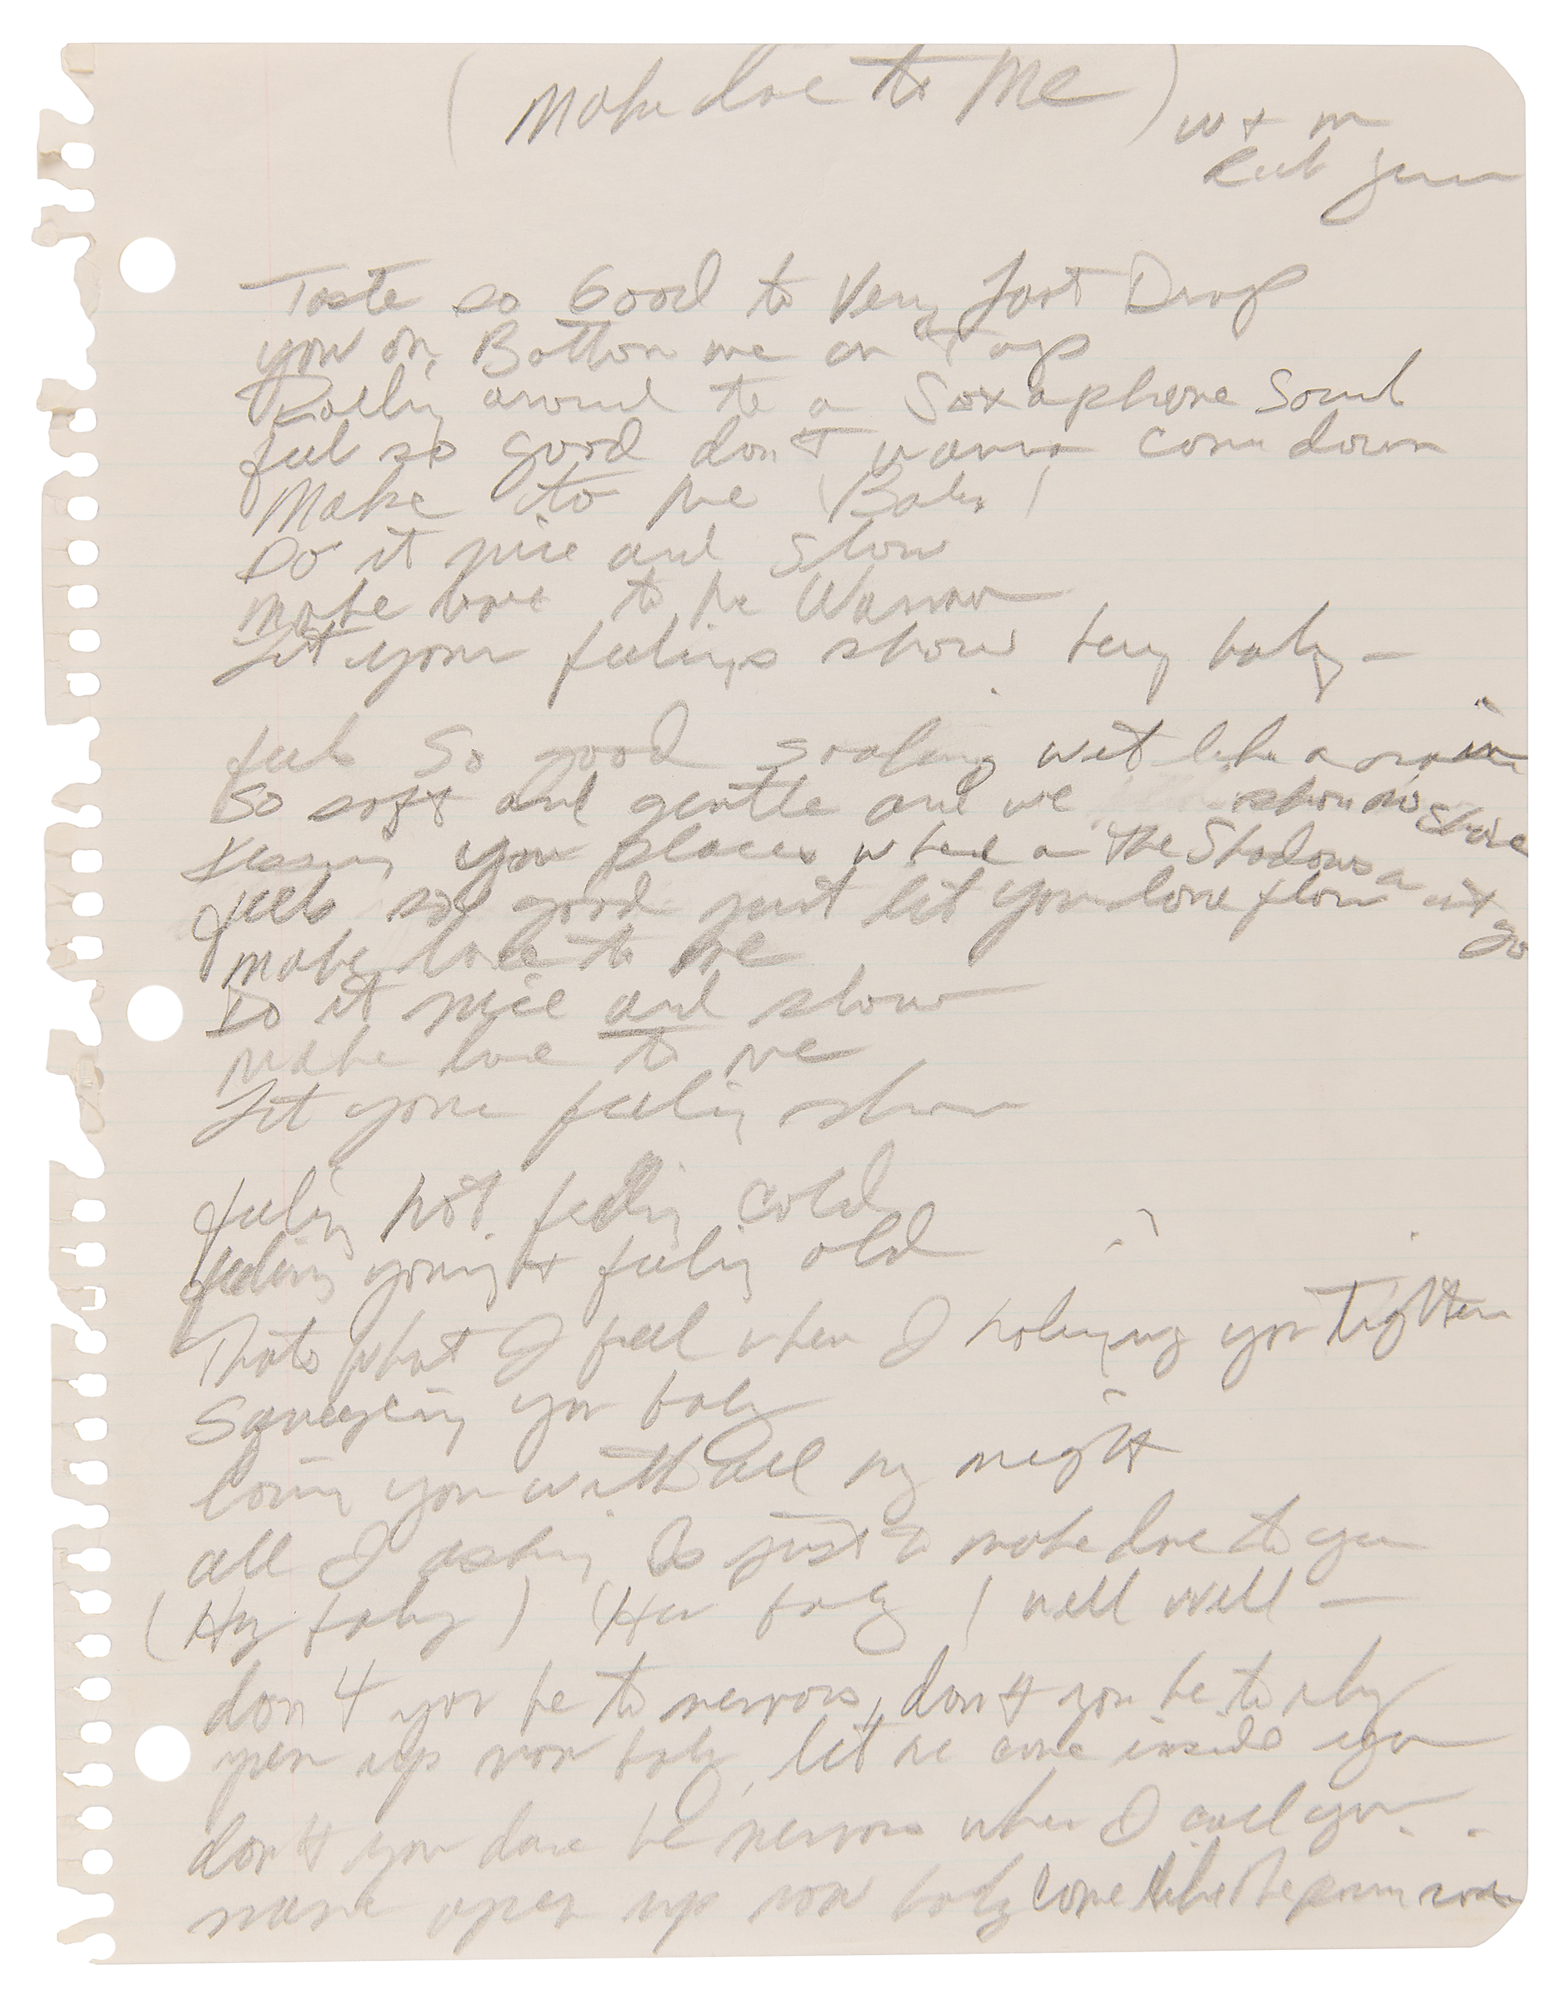 (Make love to Me)
w + m
Taste so Good to Very Last Drop
you on Bottom me on Top
around to a Saxaphone Sound
feel so good don't wanna come down
Make to me (Baby)
Do it nice and Slow
make love to me Wanna
Let your feelings show hey baby –
feels So good soaking wet like a rain
So soft and gentle and we show no shine
Kissing you places where the Shadows go
feels so good just let your love flow
make love to me
Do it nice and slow
make love to me
Let your feeling show
feeling hot feeling cold
feeling young + feeling old
Thats what I feel when I you tighten
Squeezing you baby
loving you with all my might
all I asking Is just to make love to you
(Hey baby) (Hey baby) well well –
don't you be to nervous, don't you be to shy
open up now baby, let me come inside you
don't you dare be nervous when I call your
name open up now baby come